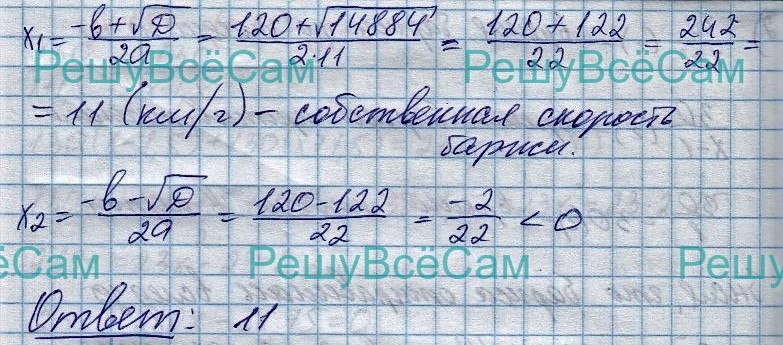 x₁ = (-в+√D)/2a = (120+√14884)/(2·11) = (120+122)/22 = 242/22 =
РешуВсёСам РешуВсёСам
= 11 (км/г) – собственная скорость
баржи.
x₂ = (-в-√D)/2a = (120-122)/22 = -2/22 < 0
еСам РешуВсёСам Решу
Ответ: 11